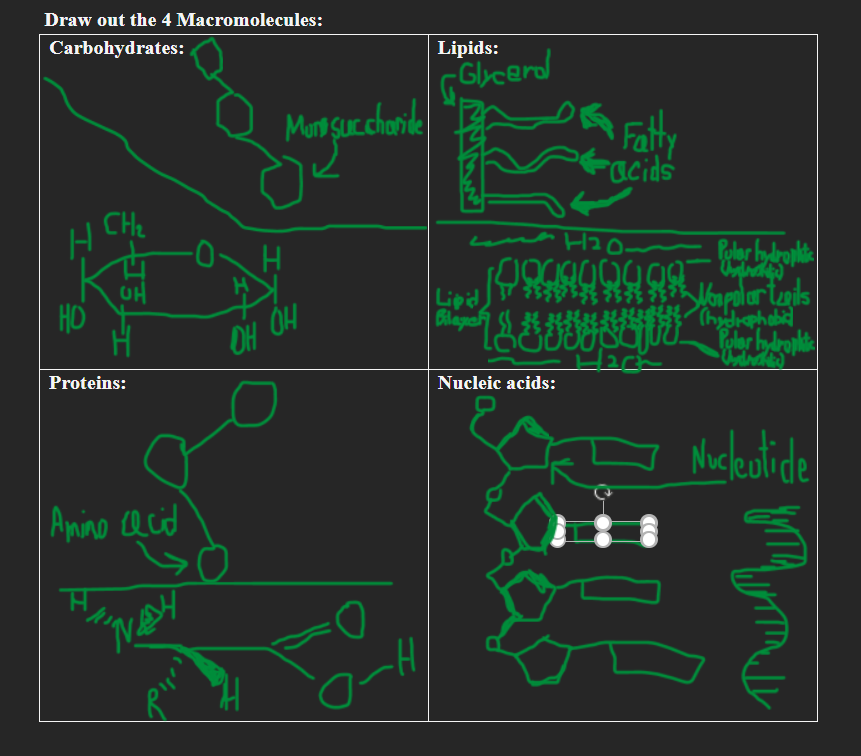 Draw out the 4 Macromolecules:
Carbohydrates:
Monosuccharide
H
CH2
O
H
H
OH
H
HO
H
OH
OH
Lipids:
Glycerol
Fatty
acids
H2O
Polar hydrophilic
Lipid
Bilayer
Nonpolar tails
(hydrophobid
Polar hydrophilic
H2O
Proteins:
Amino acid
H
H
N
R
H
H
Nucleic acids:
Nucleotide